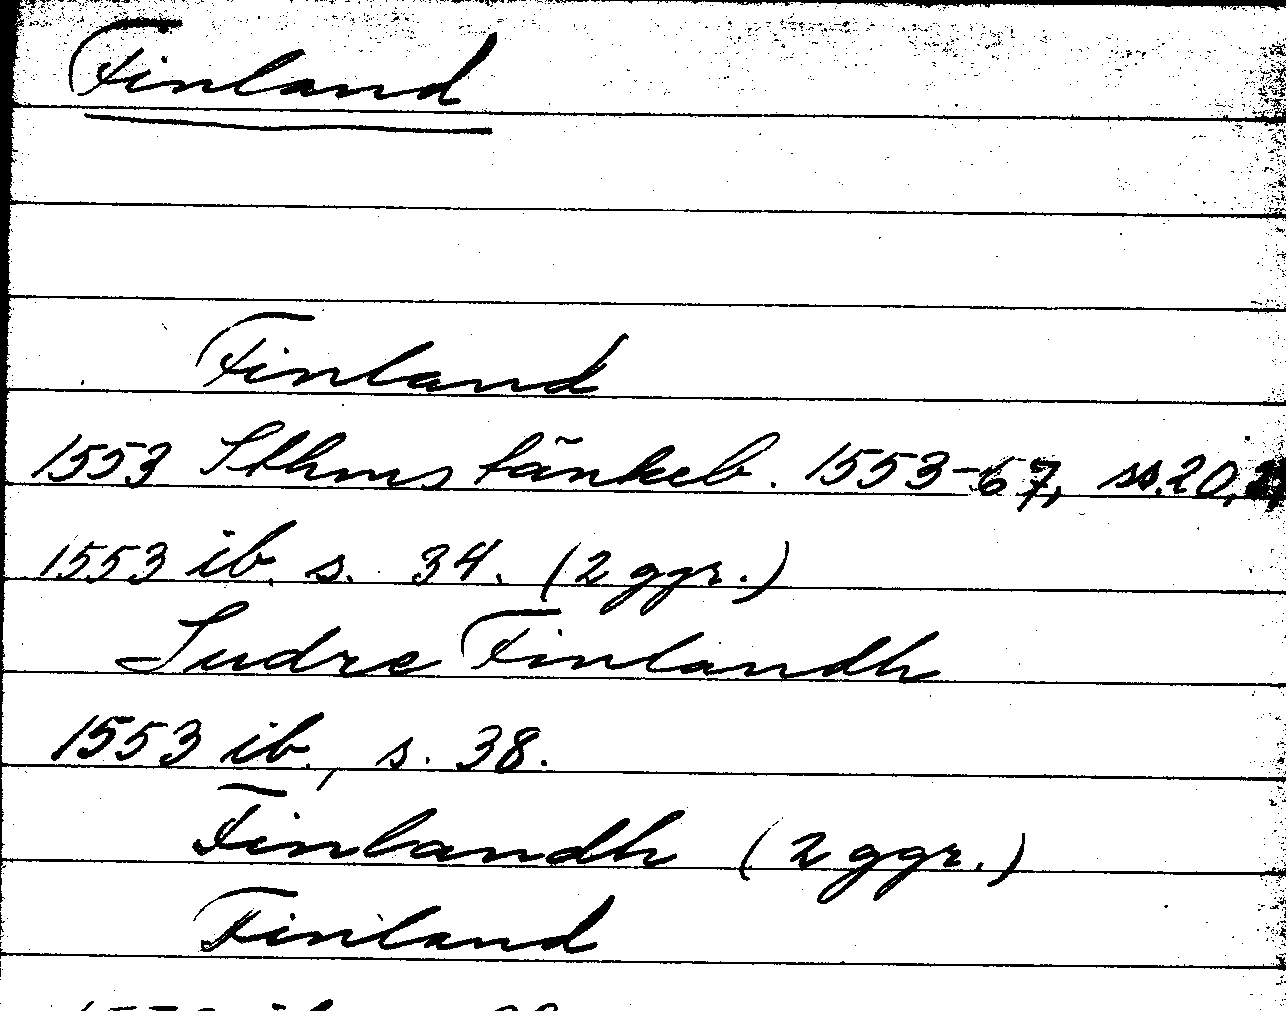 Finland
Finland
1553 Sthms tänkeb. 1553-67, ss. 20,
1553 ib. s. 34. (2 ggr.)
Sudre Finlandh
1553 ib., s. 38.
Finlandh (2 ggr.)
Finland